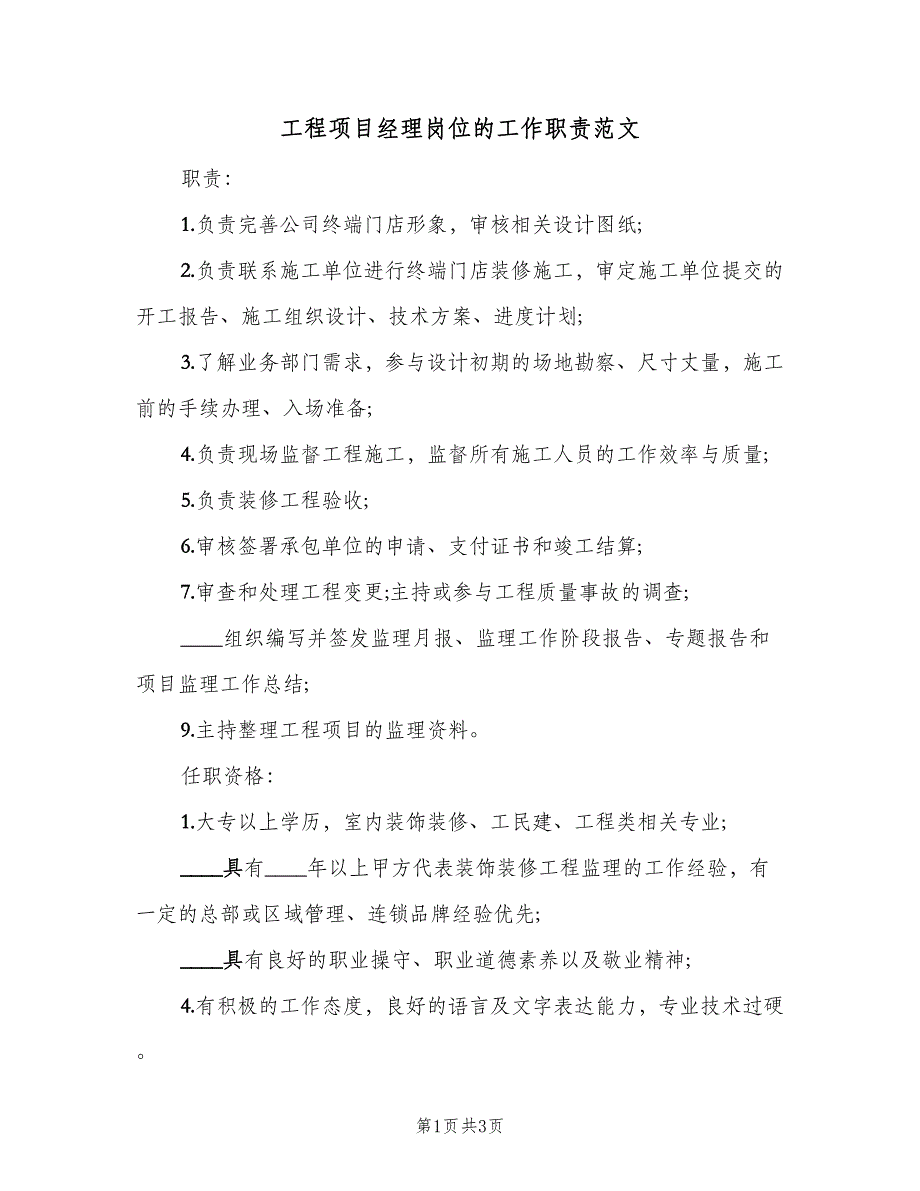 工程项目经理岗位的工作职责范文
职责：
1.负责完善公司终端门店形象，审核相关设计图纸;
2.负责联系施工单位进行终端门店装修施工，审定施工单位提交的
开工报告、施工组织设计、技术方案、进度计划;
3.了解业务部门需求，参与设计初期的场地勘察、尺寸丈量，施工
前的手续办理、入场准备;
4.负责现场监督工程施工，监督所有施工人员的工作效率与质量;
5.负责装修工程验收;
6.审核签署承包单位的申请、支付证书和竣工结算;
7.审查和处理工程变更;主持或参与工程质量事故的调查;
____组织编写并签发监理月报、监理工作阶段报告、专题报告和
项目监理工作总结;
9.主持整理工程项目的监理资料。
任职资格：
1.大专以上学历，室内装饰装修、工民建、工程类相关专业;
____具有____年以上甲方代表装饰装修工程监理的工作经验，有
一定的总部或区域管理、连锁品牌经验优先;
____具有良好的职业操守、职业道德素养以及敬业精神;
4.有积极的工作态度，良好的语言及文字表达能力，专业技术过硬
。
第1页共3页